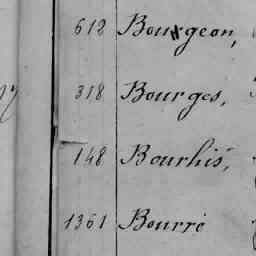 612 Bourgeon,
318 Bourges,
148 Bourhis,
1361 Bourré